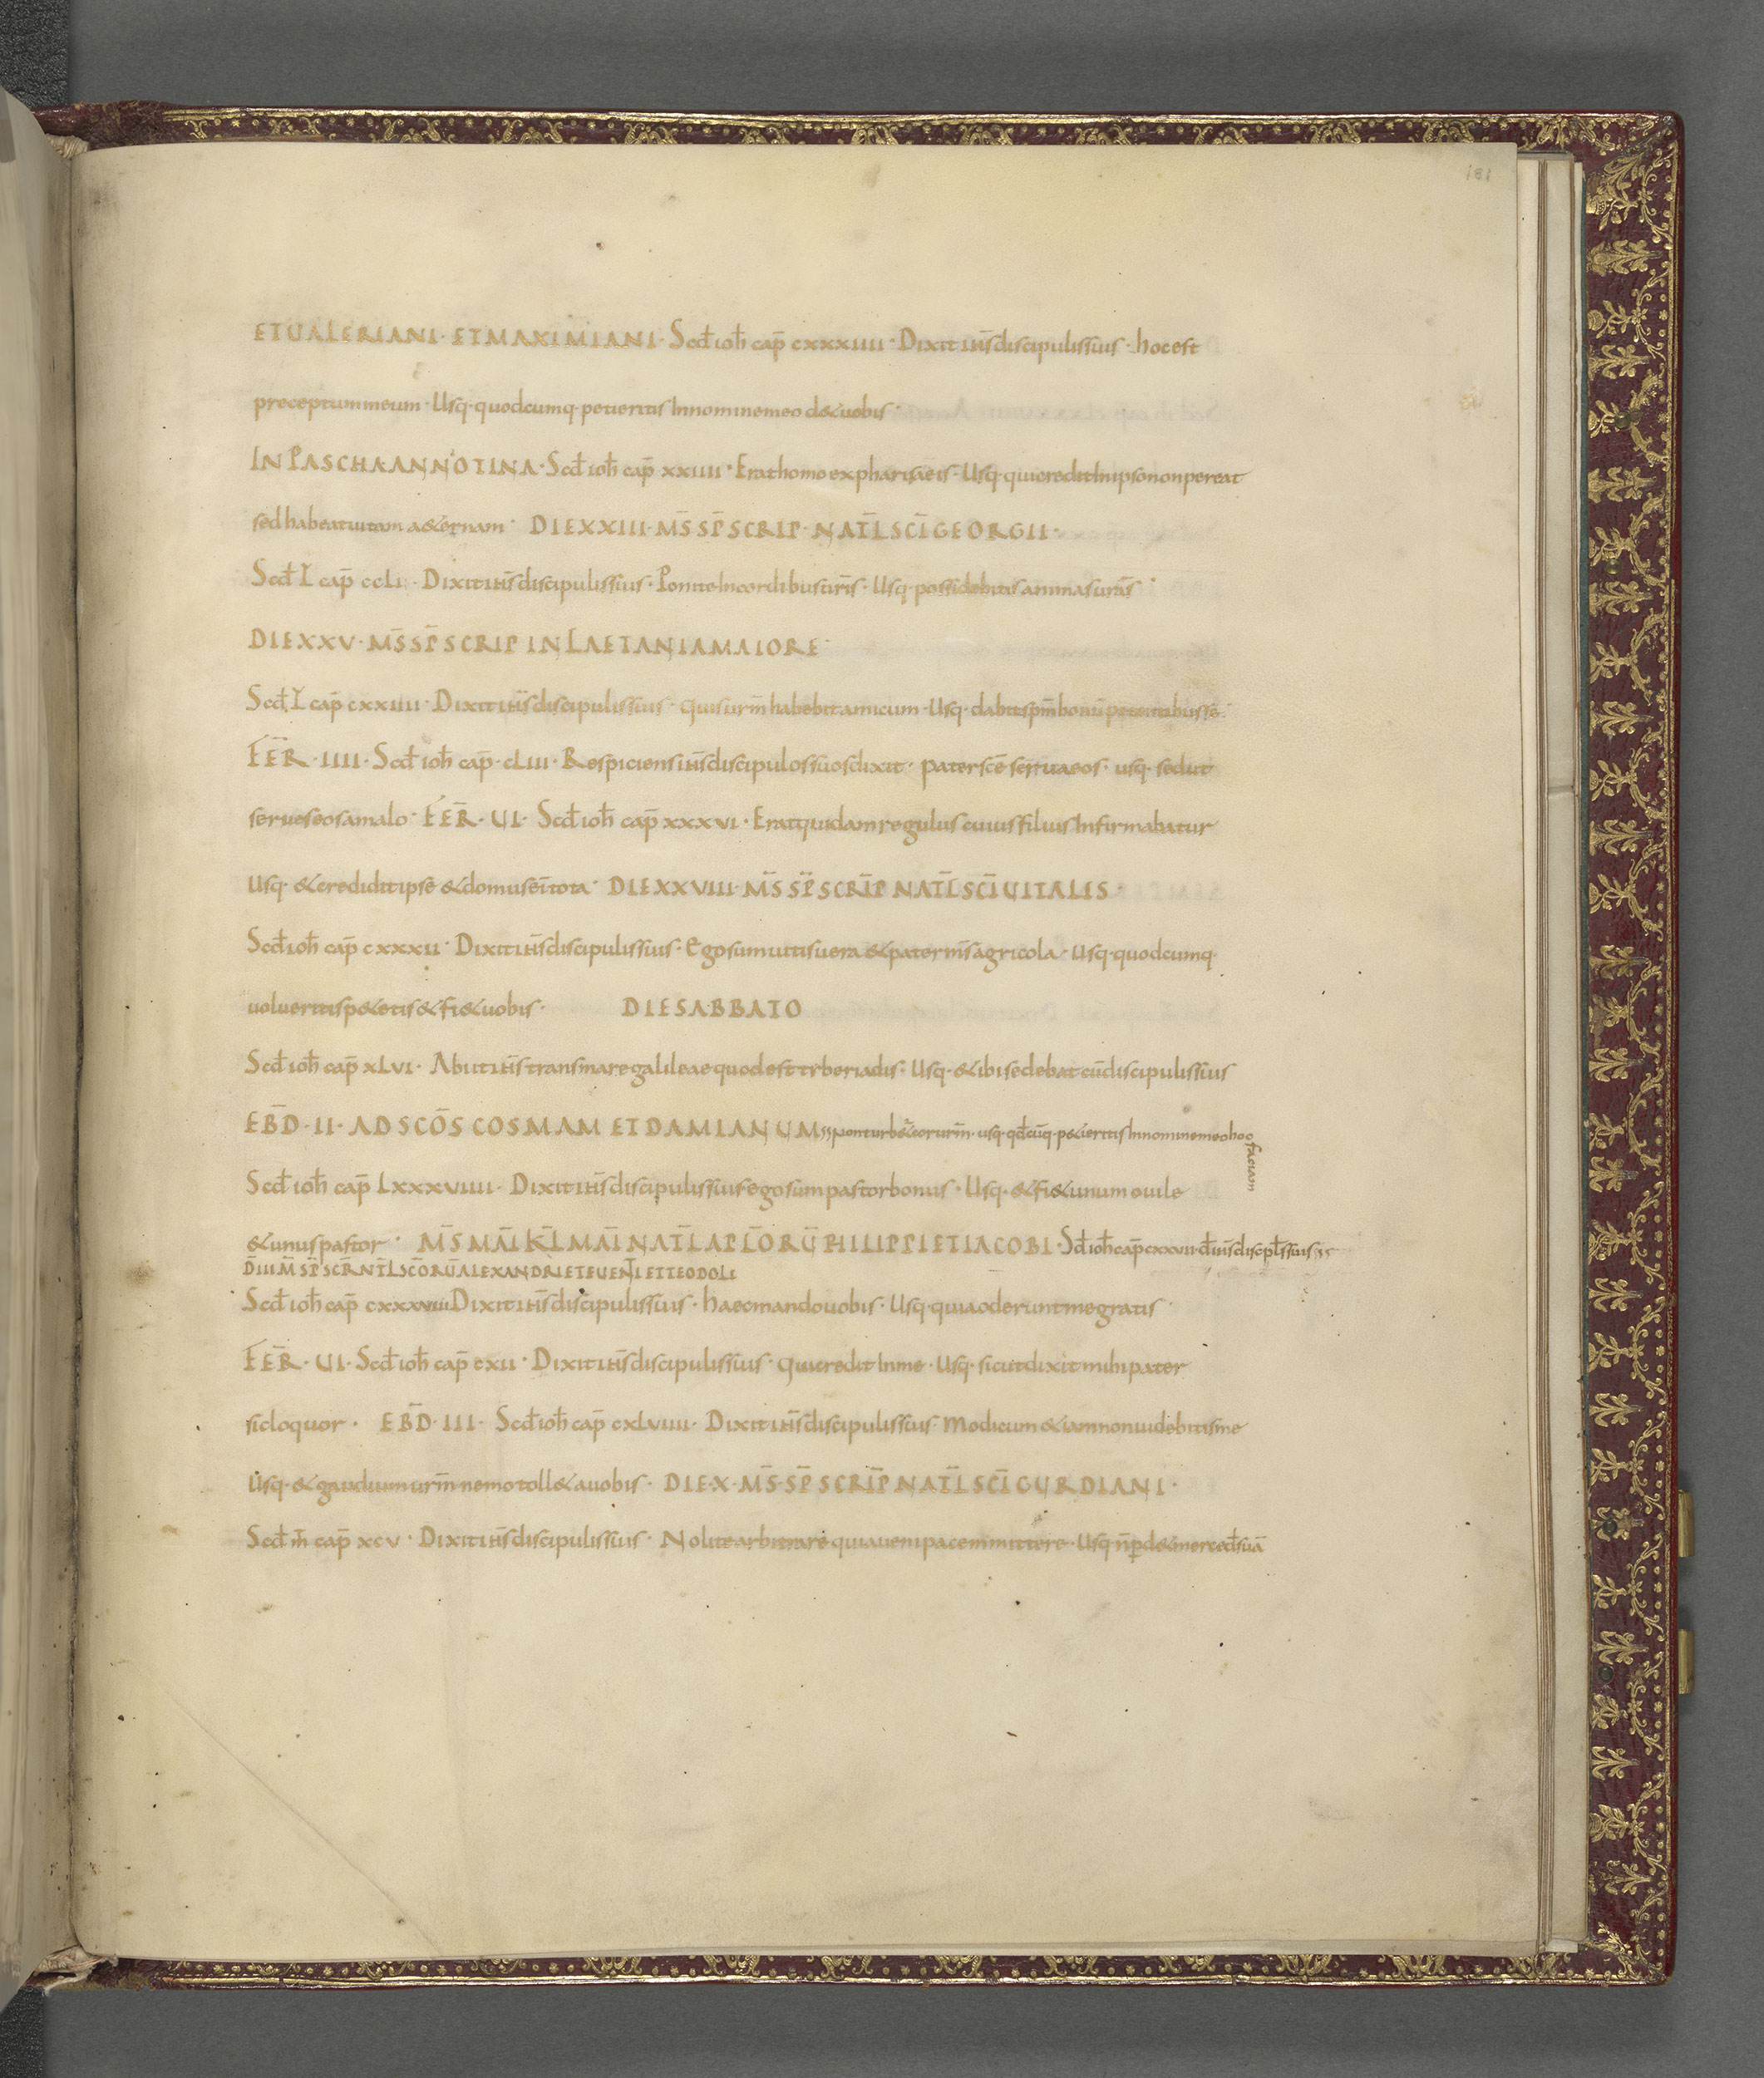 181
ETUALERIANI · ETMAXIMIANI · Scd̄ ioh̄ cap̄ cxxxiiii · Dixit ih̄s discipulis suis · hoc est
preceptum meum · Usq · quodcumq · petieritis In nomine meo d&uobis ·
IN PASCHA ANNOTINA · Scd̄ ioh̄ cap̄ xxiiii · Erat homo ex pharisaeis · Usq · qui credit In ipso non pereat
sed habeat uitam a&ernam · DIE XXIII · MS̄ SP̄ SCRIP · NAT̄L SCĪ GEORGII ·
Scd̄ L̄ cap̄ ccLi · Dixit ih̄s discipulis suis · Ponite In cordibus ūris · Usq · possidebitis animas uras̄ ·
DIE XXV · MS̄ SP̄ SCRIP IN LAETANIA MAIORE ·
Scd̄ L̄ cap̄ cxxiiii · Dixit ih̄s discipulis suis · Quis ur̄m habebit amicum · Usq · dabit sp̄m bonū petentibus se ·
FER̄ · IIII · Scd̄ ioh̄ cap̄ · cLiii · Respiciens ih̄s discipulos suos dixit · pater scē serua eos · usq · sed ut
serues eos a malo · FER̄ · UI · Scd̄ ioh̄ cap̄ xxxvi · Erat quidam regulus cuius filius Infirmabatur
Usq · & credidit ipse & domus eī tota · DIE XXVIII · MS̄ SP̄ SCRIP̄ NAT̄L SCĪ UITALIS ·
Scd̄ ioh̄ cap̄ cxxxii · Dixit ih̄s discipulis suis · Ego sum uitis uera & pater m̄s agricola · Usq · quodcumq
uolueritis p&etis & fi& uobis · DIE SABBATO
Scd̄ ioh̄ cap̄ xLvi · Abiit ih̄s trans mare galileae quod est tyberiadis · Usq · & ibi sedebat cū discipulis suis
EBD̄ · II · AD SCŌS COSMAM ET DAMIANUM Non turb& cor ur̄m · usq · qd̄cūq · p&ieritis In nomine meo hoc
faciam
Scd̄ ioh̄ cap̄ Lxxxviiii · Dixit ih̄s discipulis suis ego sum pastor bonus · Usq · & fi& unum ouile
& unus pastor · MS̄ MAĪ KL̄ MAĪ NAT̄L APL̄ORŪ PHILIPPI ET IACOBI · Sd̄ ioh̄ cap̄ cxxvii · d̄ ih̄s discip̄lis suis
D̄ III M̄S SP̄ SCR̄ NT̄L SCŌRŪ ALEXANDRI ET EUENTI ET TEODOLI
Scd̄ ioh̄ cap̄ cxxxviii Dixit ih̄s discipulis suis · haec mando uobis · Usq · quia oderunt me gratis ·
FER̄ · UI · Scd̄ ioh̄ cap̄ cxii · Dixit ih̄s discipulis suis · Qui credit In me · Usq · sicut dixit mihi pater
sic loquor · EBD̄ · III · Scd̄ ioh̄ cap̄ cxLviiii · Dixit ih̄s discipulis suis · Modicum & iam non uidebitis me
Usq · & gaudium ur̄m nemo toll& a uobis · DIE X · MS̄ · SP̄ SCRIP̄ NAT̄L SCĪ GURDIANI ·
Scd̄ m̄ cap̄ xcv · Dixit ih̄s discipulis suis · Nolite arbitrare quia ueni pacem mittere · Usq · n̄ p̱d& merced̄ suā